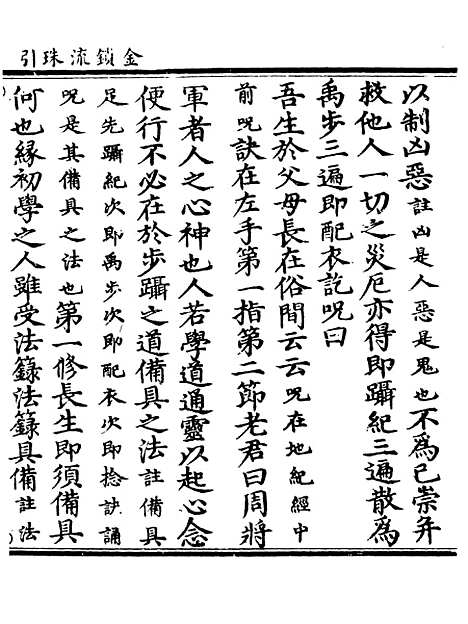 金鎖流珠引
以制凶惡註凶是人惡是鬼也不爲已崇弁
救他人一切之災厄亦得即躡紀三遍散爲
禹步三遍即配衣訖呪曰
吾生於父母長在俗間云云呪在地紀經中
前呪訣在左手第一指第二節老君曰周將
軍者人之心神也人若學道通靈以起心念
便行不必在於步躡之道備具之法註備具
足先躡紀次即禹步次即配衣次即捻訣誦
呪是其備具之法也第一修長生即須備具
何也緣初學之人雖受法籙法籙具備註法